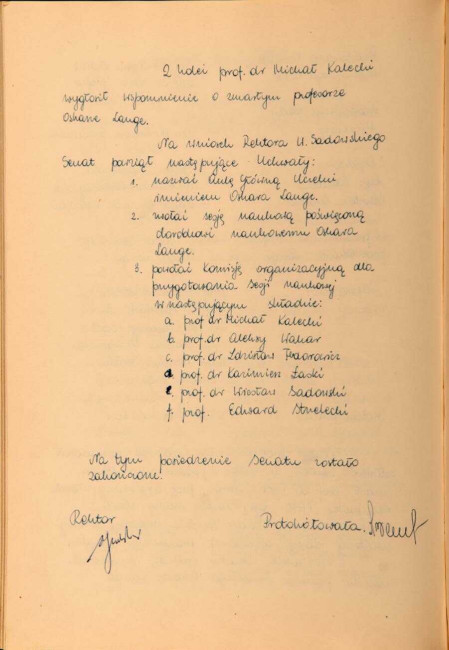 Z kolei prof. dr Michał Kalecki
wygłosił wspomnienie o zmarłym profesorze
Oskarze Lange.
Na wniosek Rektora W. Sadowskiego
Senat powziął następujące Uchwały:
1. nazwać Aulę Główną Uczelni
imieniem Oskara Lange.
2. zwołać sesję naukową poświęconą
dorobkowi naukowemu Oskara
Lange.
3. powołać Komisję organizacyjną dla
przygotowania sesji naukowej
w następującym składzie:
a. prof. dr Michał Kalecki
b. prof. dr Aleksy Wakar
c. prof. dr Zdzisław Fedorowicz
d. prof. dr Kazimierz Łaski
e. prof. dr Wiesław Sadowski
f. prof. Edward Strzelecki
Na tym posiedzenie Senatu zostało
zakończone.
Rektor Protokółowała.